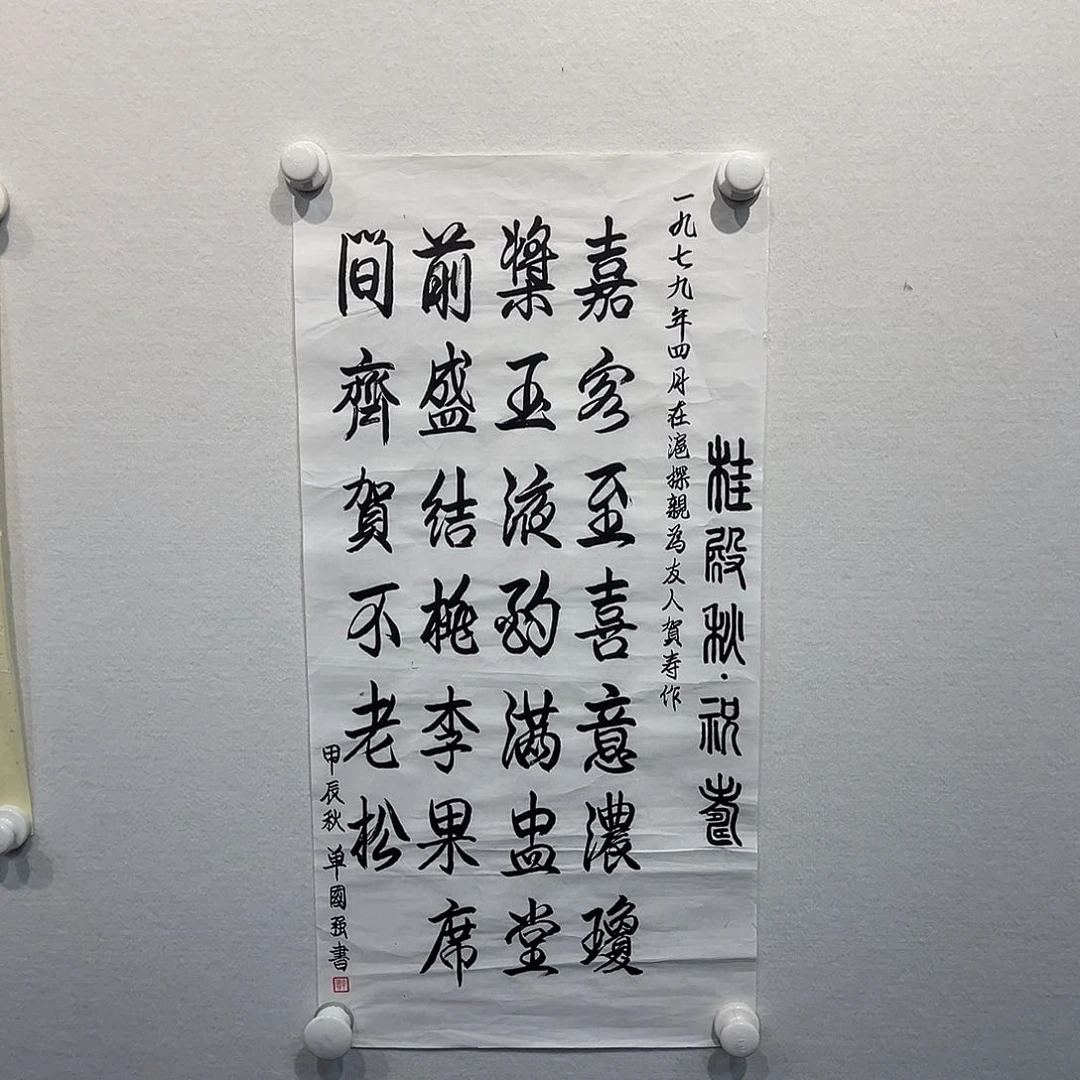 桂殿秋·祝壽
一九七九年四月在滬探親為友人賀寿作
嘉客至喜意濃瓊
槳玉液酌满盅堂
前盛結桃李果席
間齊賀不老松
甲辰秋 单國强書